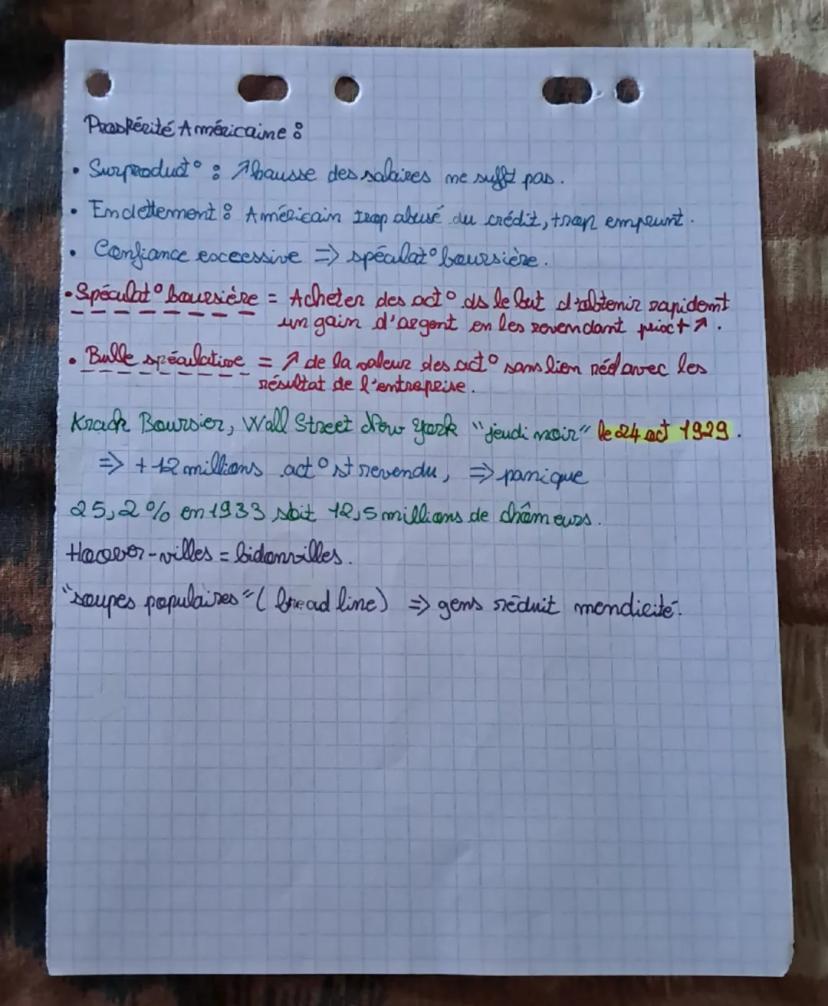 Prospérité Américaine :
• Surproduct° : ↗ hausse des salaires ne suffit pas.
• Endettement : Américain trop abusé du crédit, trop emprunt.
• Confiance excessive ⇒ spéculat° boursière.
• Spéculat° boursière = Acheter des act° ds le but d'obtenir rapidemt
un gain d'argent en les revendant prix + ↗.
• Bulle spéculative = ↗ de la valeur des act° sans lien réel avec les
résultat de l'entreprise.
Krach Boursier, Wall Street New York "jeudi noir" le 24 oct 1929.
⇒ + 12 millions act° st revendu, ⇒ panique
25,2 % en 1933 soit 12,5 millions de chômeurs.
Hoover-villes = bidonvilles.
"soupes populaires" (bread line) ⇒ gens réduit mendicité.